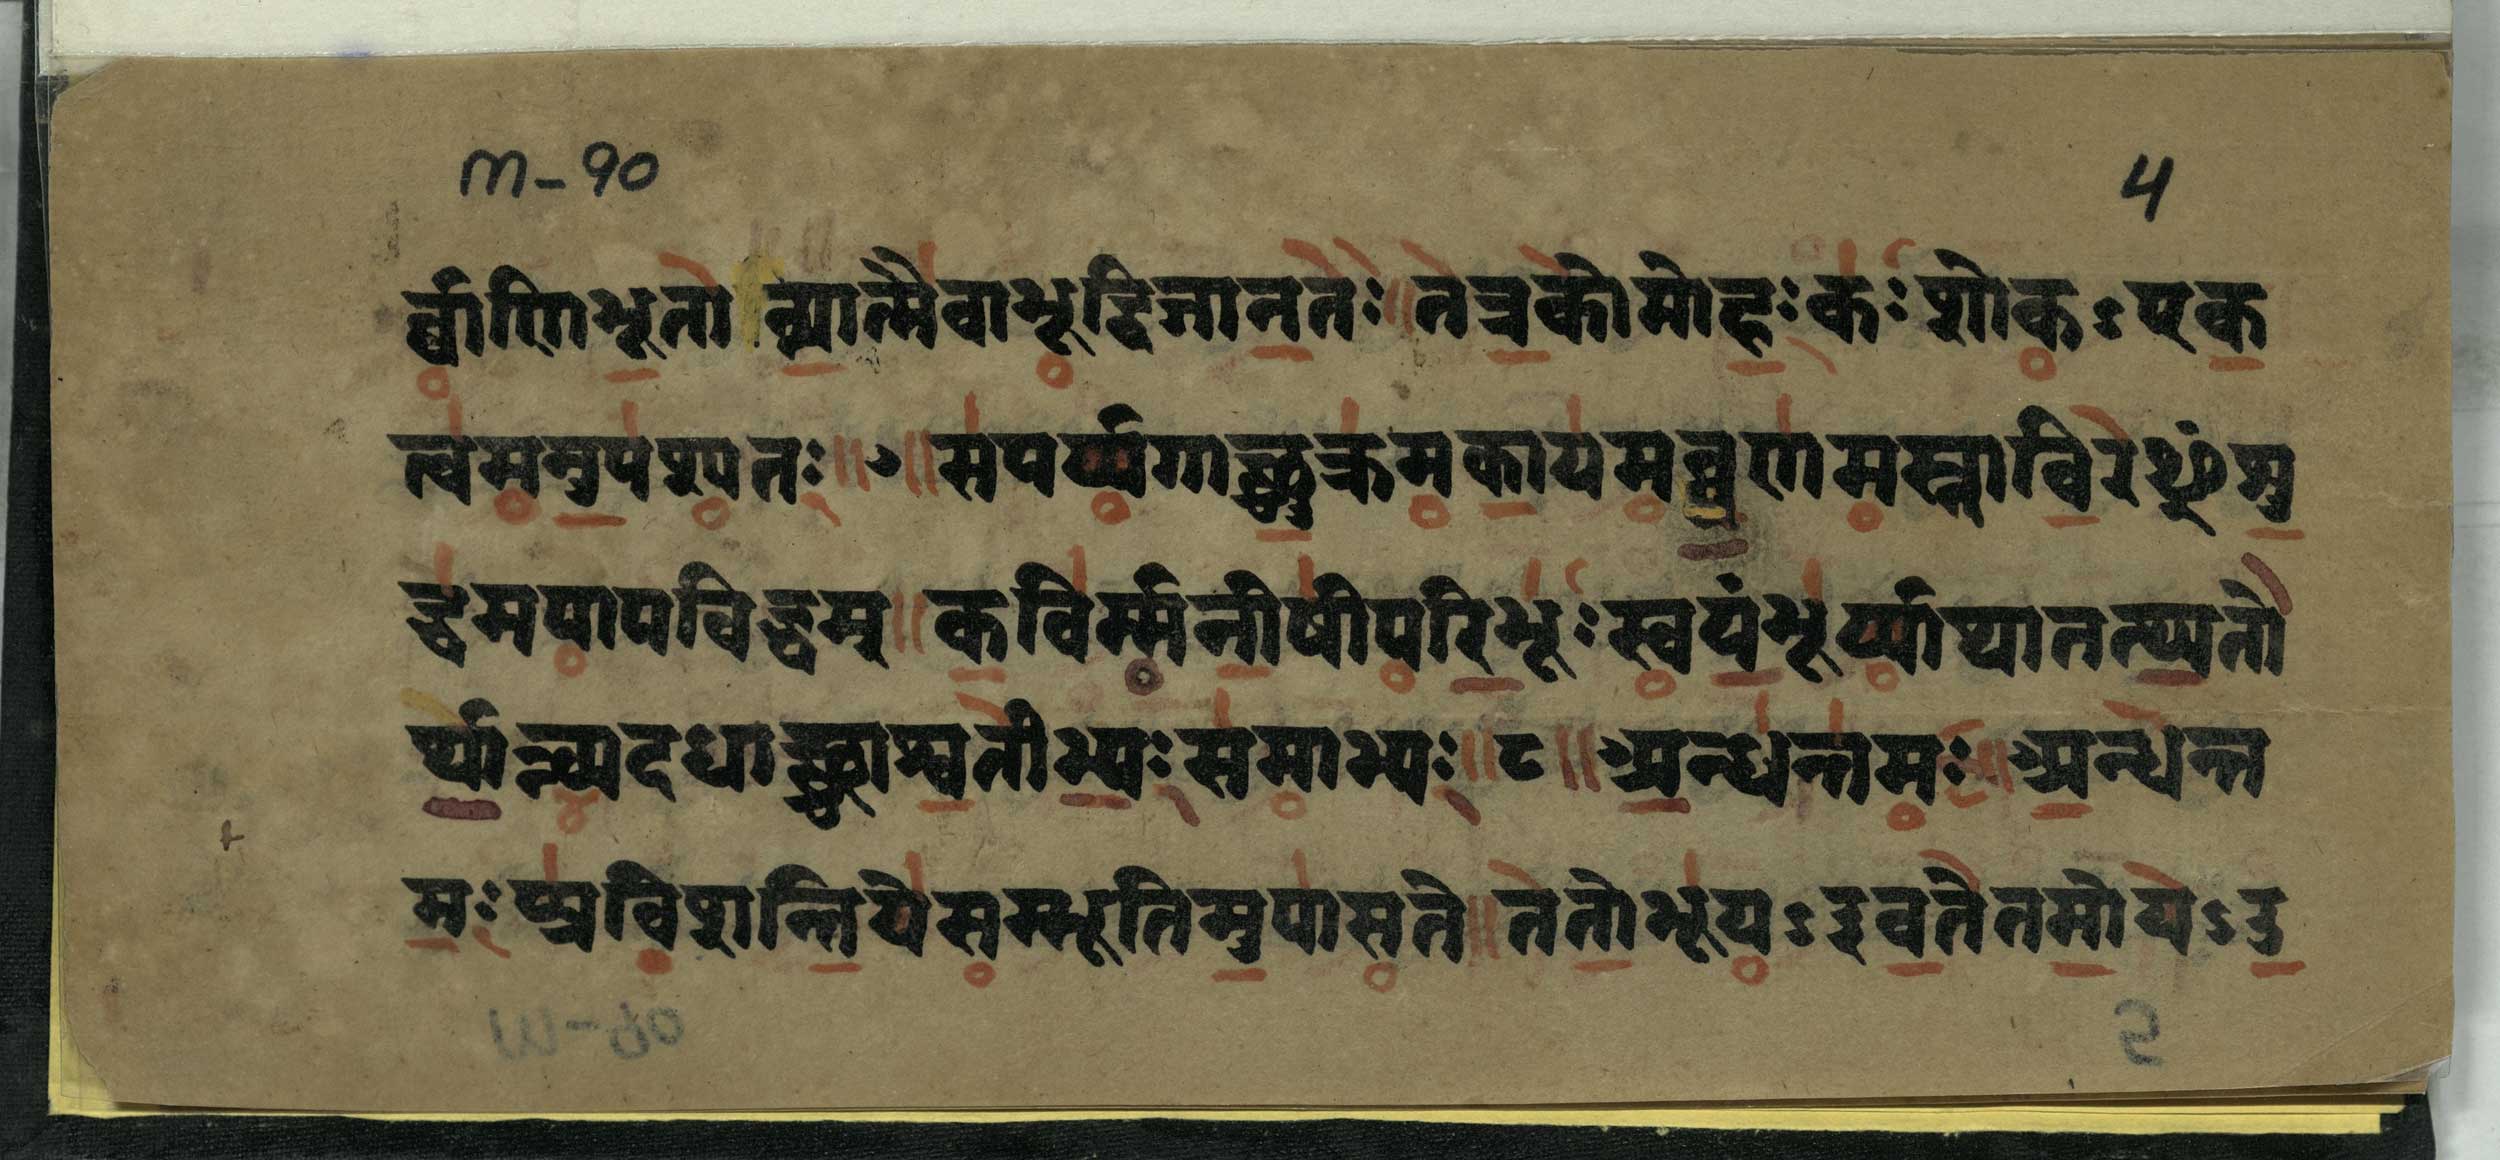 m-90
4
र्व्वाणिभूतो न्यात्मैवाभूद्विजानतः॥ तत्रकोमोहःकः शोकऽएक
त्वमनुपश्यतः॥ ७ ॥ सपर्य्यगाच्छुक्रमकायमव्व्रणमस्नाविरᳪंशु
द्धमपापविद्धम् ॥ कविर्म्मनीषीपरिभूः स्वयंभूर्य्याथातत्थ्यतो
र्थ्यान्व्यदधाच्छाश्वतीभ्यः समाभ्यः ॥ ८ ॥ अन्धन्तमः ॥ अन्धन्त
मः प्प्रविशन्तियेसम्भूतिमुपासते ॥ ततोभूयऽइवतेतमोयेऽउ